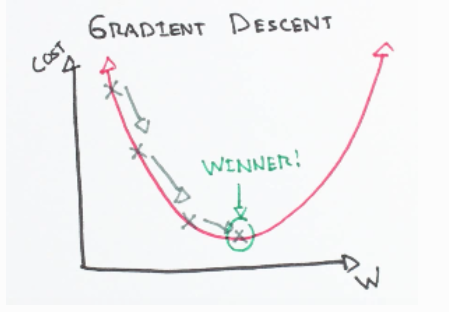 GRADIENT DESCENT
COST
WINNER!
W